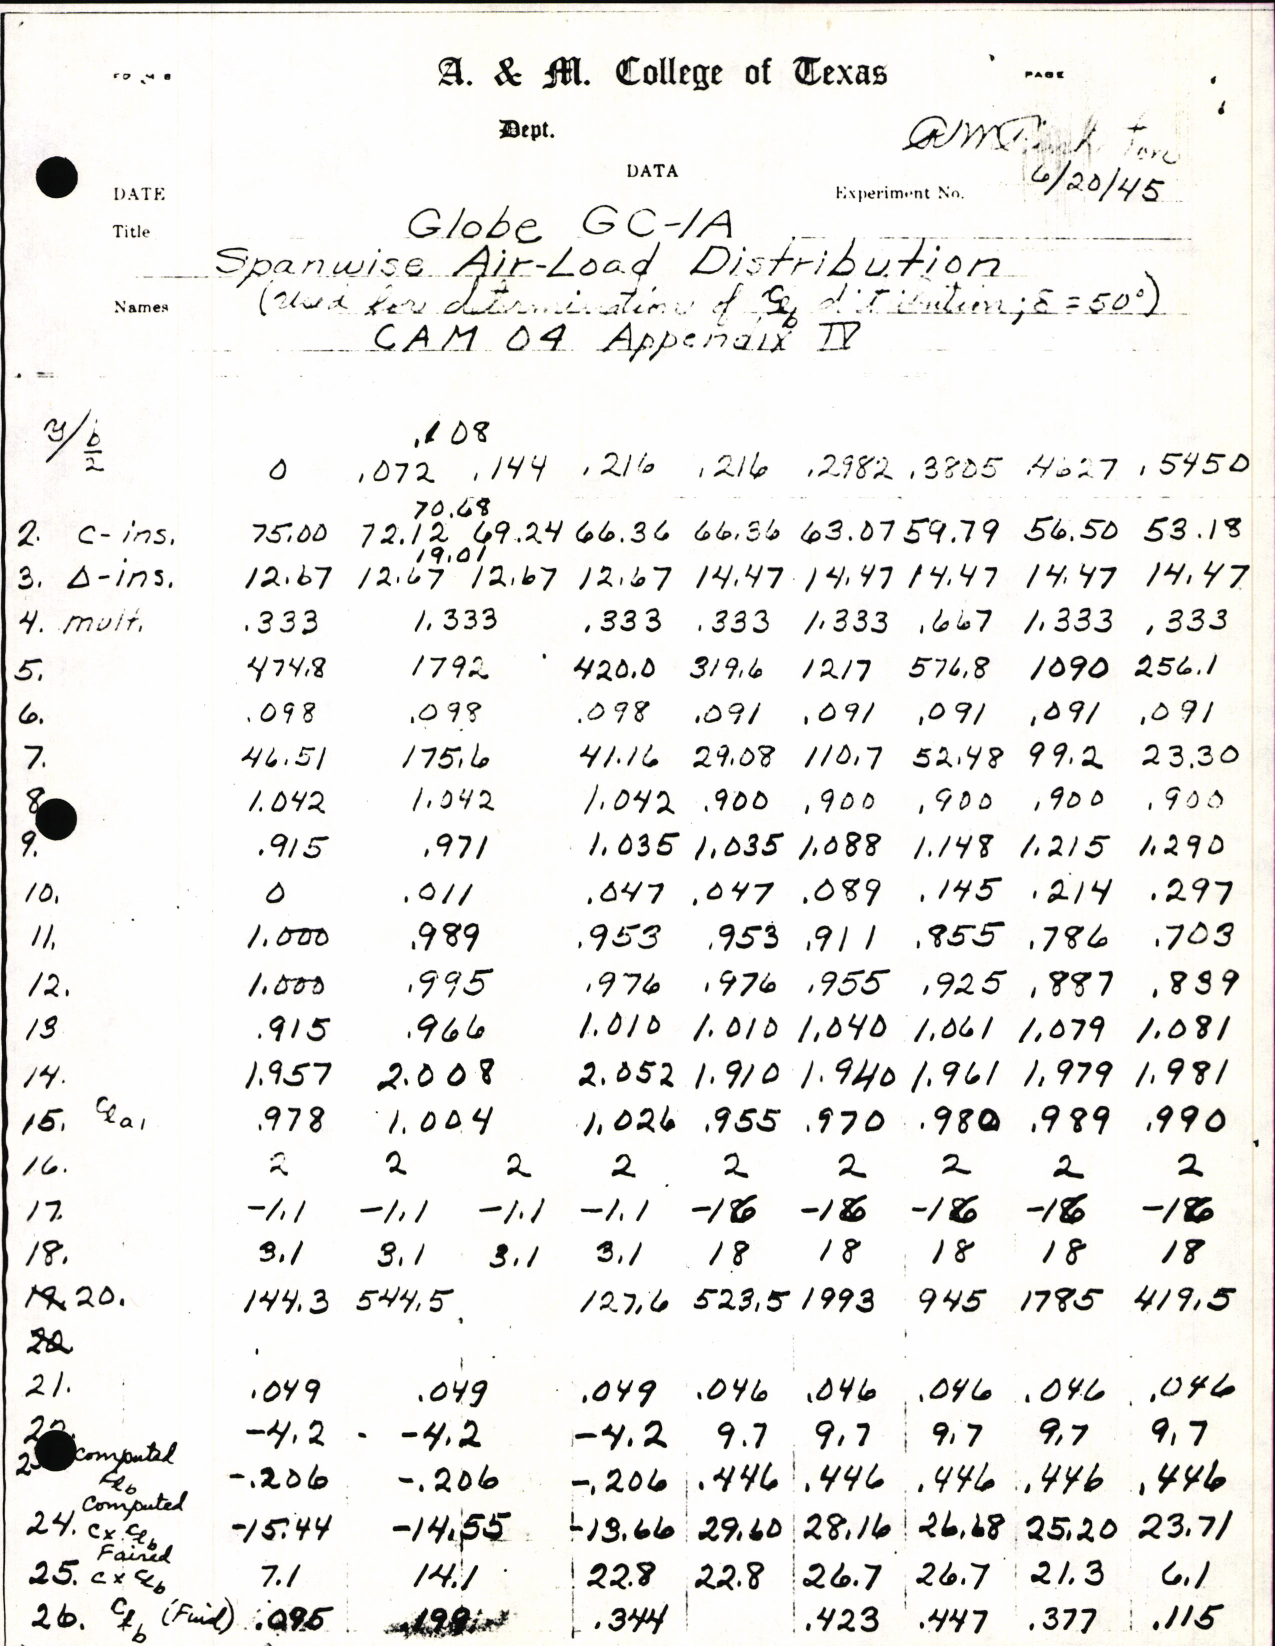 A. & M. College of Texas
PAGE
Dept.
DATA
DATE
Experiment No. 6/20/45
Title Globe GC-1A
Spanwise Air-Load Distribution
Names (Used for determination of Clb distribution; δ = 50°)
CAM 04 Appendix IV
.108
y/b/2 0 .072 .144 .216 .216 .2982 .3805 .4627 .5450
70.68
2. c-ins. 75.00 72.12 69.24 66.36 66.36 63.07 59.79 56.50 53.18
19.01
3. Δ-ins. 12.67 12.67 12.67 12.67 14.47 14.47 14.47 14.47 14.47
4. mult. .333 1.333 .333 .333 1.333 .667 1.333 .333
5. 474.8 1792 420.0 319.6 1217 576.8 1090 256.1
6. .098 .098 .098 .091 .091 .091 .091 .091
7. 46.51 175.6 41.16 29.08 110.7 52.48 99.2 23.30
8 1.042 1.042 1.042 .900 .900 .900 .900 .900
9. .915 .971 1.035 1.035 1.088 1.148 1.215 1.290
10. 0 .011 .047 .047 .089 .145 .214 .297
11. 1.000 .989 .953 .953 .911 .855 .786 .703
12. 1.000 .995 .976 .976 .955 .925 .887 .839
13 .915 .966 1.010 1.010 1.040 1.061 1.079 1.081
14. 1.957 2.008 2.052 1.910 1.940 1.961 1.979 1.981
15. Cla1 .978 1.004 1.026 .955 .970 .980 .989 .990
16. 2 2 2 2 2 2 2 2 2
17. -1.1 -1.1 -1.1 -1.1 -16 -16 -16 -16 -16
18. 3.1 3.1 3.1 3.1 18 18 18 18 18
19. 20. 144.3 544.5 127.6 523.5 1993 945 1785 419.5
20
21. .049 .049 .049 .046 .046 .046 .046 .046
22. -4.2 -4.2 -4.2 9.7 9.7 9.7 9.7 9.7
2 computed Clb -.206 -.206 -.206 .446 .446 .446 .446 .446
24. Computed c x Clb -15.44 -14.55 -13.66 29.60 28.16 26.68 25.20 23.71
25. Faired c x Clb 7.1 14.1 22.8 22.8 26.7 26.7 21.3 6.1
26. Clb (Final) .095 .199 .344 .423 .447 .377 .115